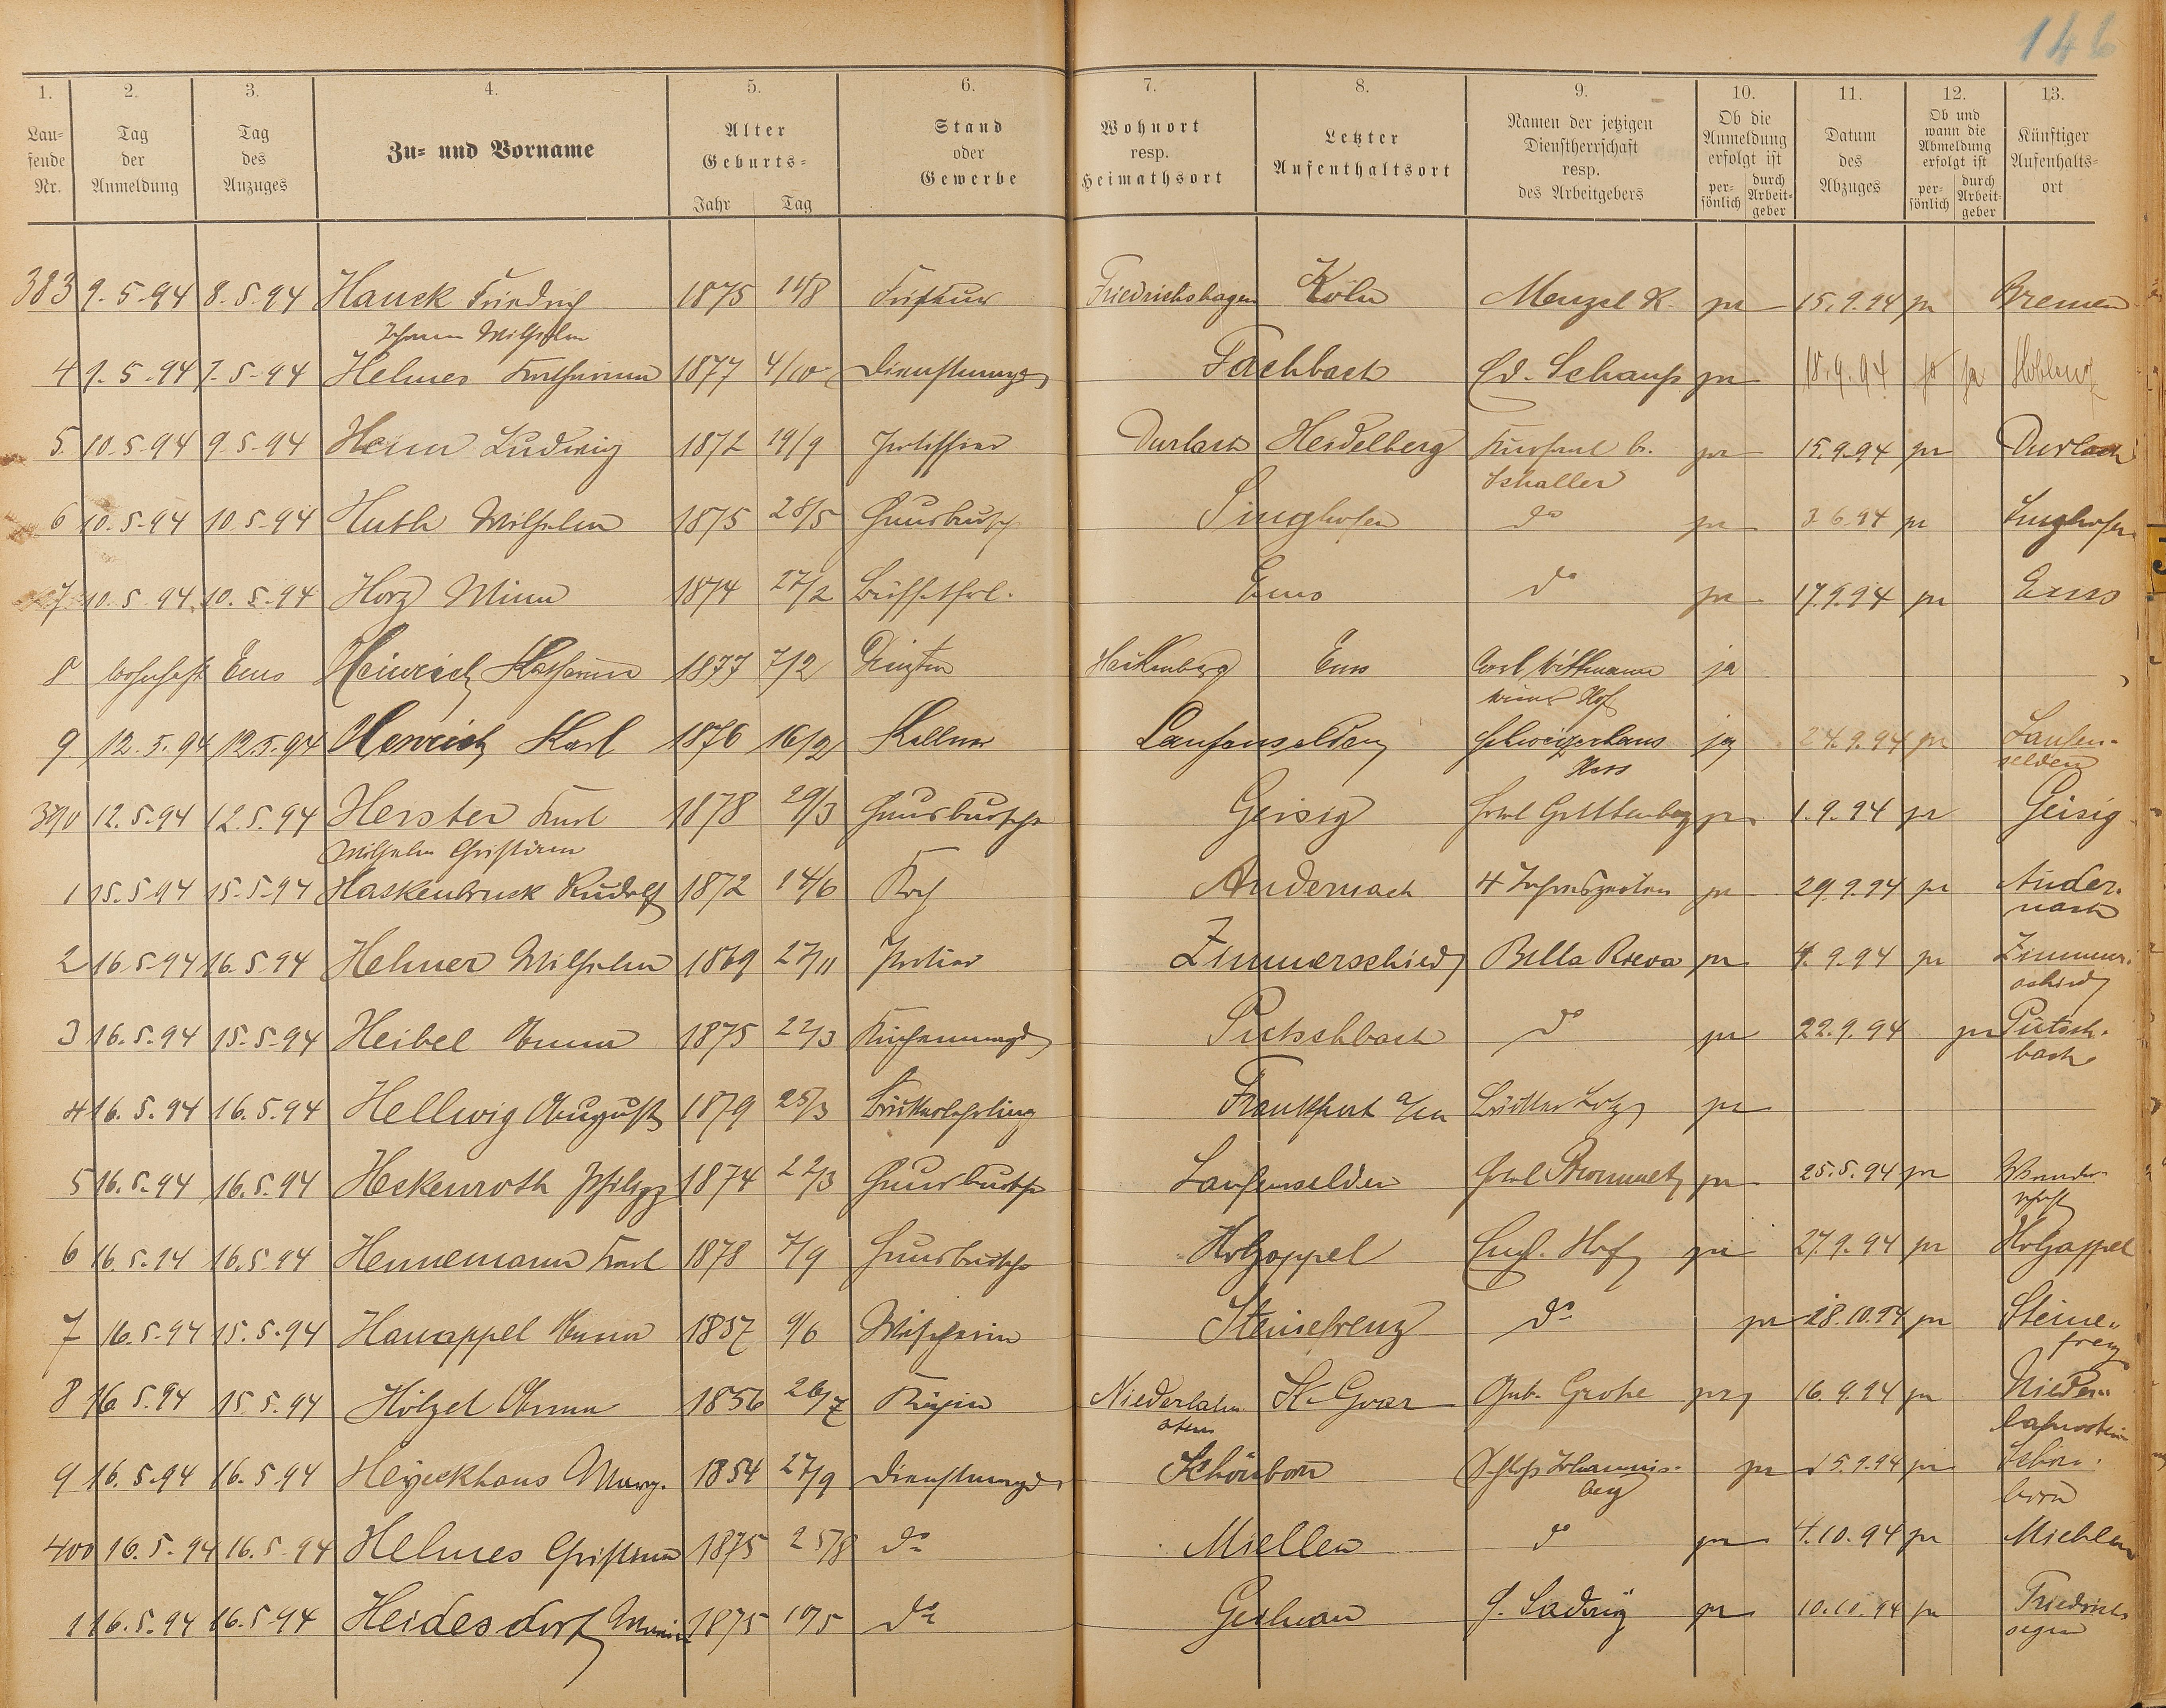 146
1. 2. 3. 4. 5. 6. 7. 8. 9. 10. 11. 12. 13.
Lau-
fende
Nr.
Tag
der
Anmeldung
Tag
des
Anzuges
Zu- und Vorname
Alter
Geburts-
Jahr Tag
Stand
oder
Gewerbe
Wohnort
resp.
Heimathsort
Letzter
Aufenthaltsort
Namen der jetzigen
Dienstherrschaft
resp.
des Arbeitgebers
Ob die
Anmeldung
erfolgt ist
per-
sönlich
durch
Arbeit-
geber
Datum
des
Abzuges
Ob und
wann die
Abmeldung
erfolgt ist
per-
sönlich
durch
Arbeit-
geber
Künftiger
Aufenhalts-
ort
383 9.5.94 8.5.94 Hauck Friedrich 1875 Friseur Friedrichshagen Köln Menzel K. ja 15.9.94 ja Bremen
Johann Wilhelm
4 9.5.94 7.5.94 Helmes Katharina 1877 4/10 Dienstmagd Fachbach Ed. Schaup ja 18.9.94 ja ja
5 10.5.94 9.5.94 Henn Ludwig 1872 19/9 Durlach Heidelberg Kursaal b. ja 15.9.94 ja Durlach
Schaller
6 10.5.94 10.5.94 Huth Wilhelm 1875 28/5 Hausbursch Singhofen do ja 3.6.94 ja Singhofen
7 10.5.94 10.5.94 Horz Minna 1874 27/2 Büffetfrl. Ems do ja 17.9.94 ja Ems
8 wohnhaft Ems Heinrich Katharina 1877 7/2 Hackenberg Ems Carl Wittmann ja
Wiener Hof
9 12.5.94 12.5.94 Henrich Karl 1876 16/2 Kellner Laufenselden Schweizerhaus ja 24.9.94 ja Laufen-
Hess selden
390 12.5.94 12.5.94 Herster Karl 1878 29/3 Hausbursche Geisig Hotel Guttenberg ja 1.9.94 ja Geisig
Wilhelm Christian
1 15.5.94 15.5.94 Haskenbruck Rudolf 1872 14/6 Koch Andernach 4 Jahreszeiten ja 29.9.94 ja Ander-
nach
2 16.5.94 16.5.94 Hehner Wilhelm 1869 27/11 Portier Zimmerschied Bella Riva ja 4.9.94 ja Zimmer-
schied
3 16.5.94 15.5.94 Heibel Anna 1875 22/3 Küchenmagd Pütschbach do ja 22.9.94 ja Pütsch-
bach
4 16.5.94 16.5.94 Hellwig August 1879 25/3 Bäckerlehrling Frankfurt a/M Bäcker Lotz ja
5 16.5.94 16.5.94 Heckenroth Philipp 1874 22/3 Hausbursche Laufenselden Hotel ja 25.5.94 ja Wander-
schaft
6 16.5.94 16.5.94 Hennemann Karl 1878 7/9 Hausbursche Holzappel Engl. Hof ja 27.9.94 ja Holzappel
7 16.5.94 15.5.94 Hanappel Anna 1857 9/6 Wäscherin Steinefrenz do ja 28.10.94 ja Steine-
frenz
8 16.5.94 15.5.94 Hölzel Anna 1856 26/7 Köchin Niederlahn St. Goar Gub. Grohe ja 16.9.94 ja Nieder-
stein lahnstein
9 16.5.94 16.5.94 Heyeckhaus Marg. 1854 27/9 Dienstmagd Schönborn Schloß Johannis- ja 15.9.94 ja Schön-
berg born
400 16.5.94 16.5.94 Helmes Christina 1875 25/8 do Miellen do ja 4.10.94 ja Miehlen
1 16.5.94 16.5.94 Heidesdorf Maria 1875 10/5 do ja 10.10.94 ja Friedrichs
segen